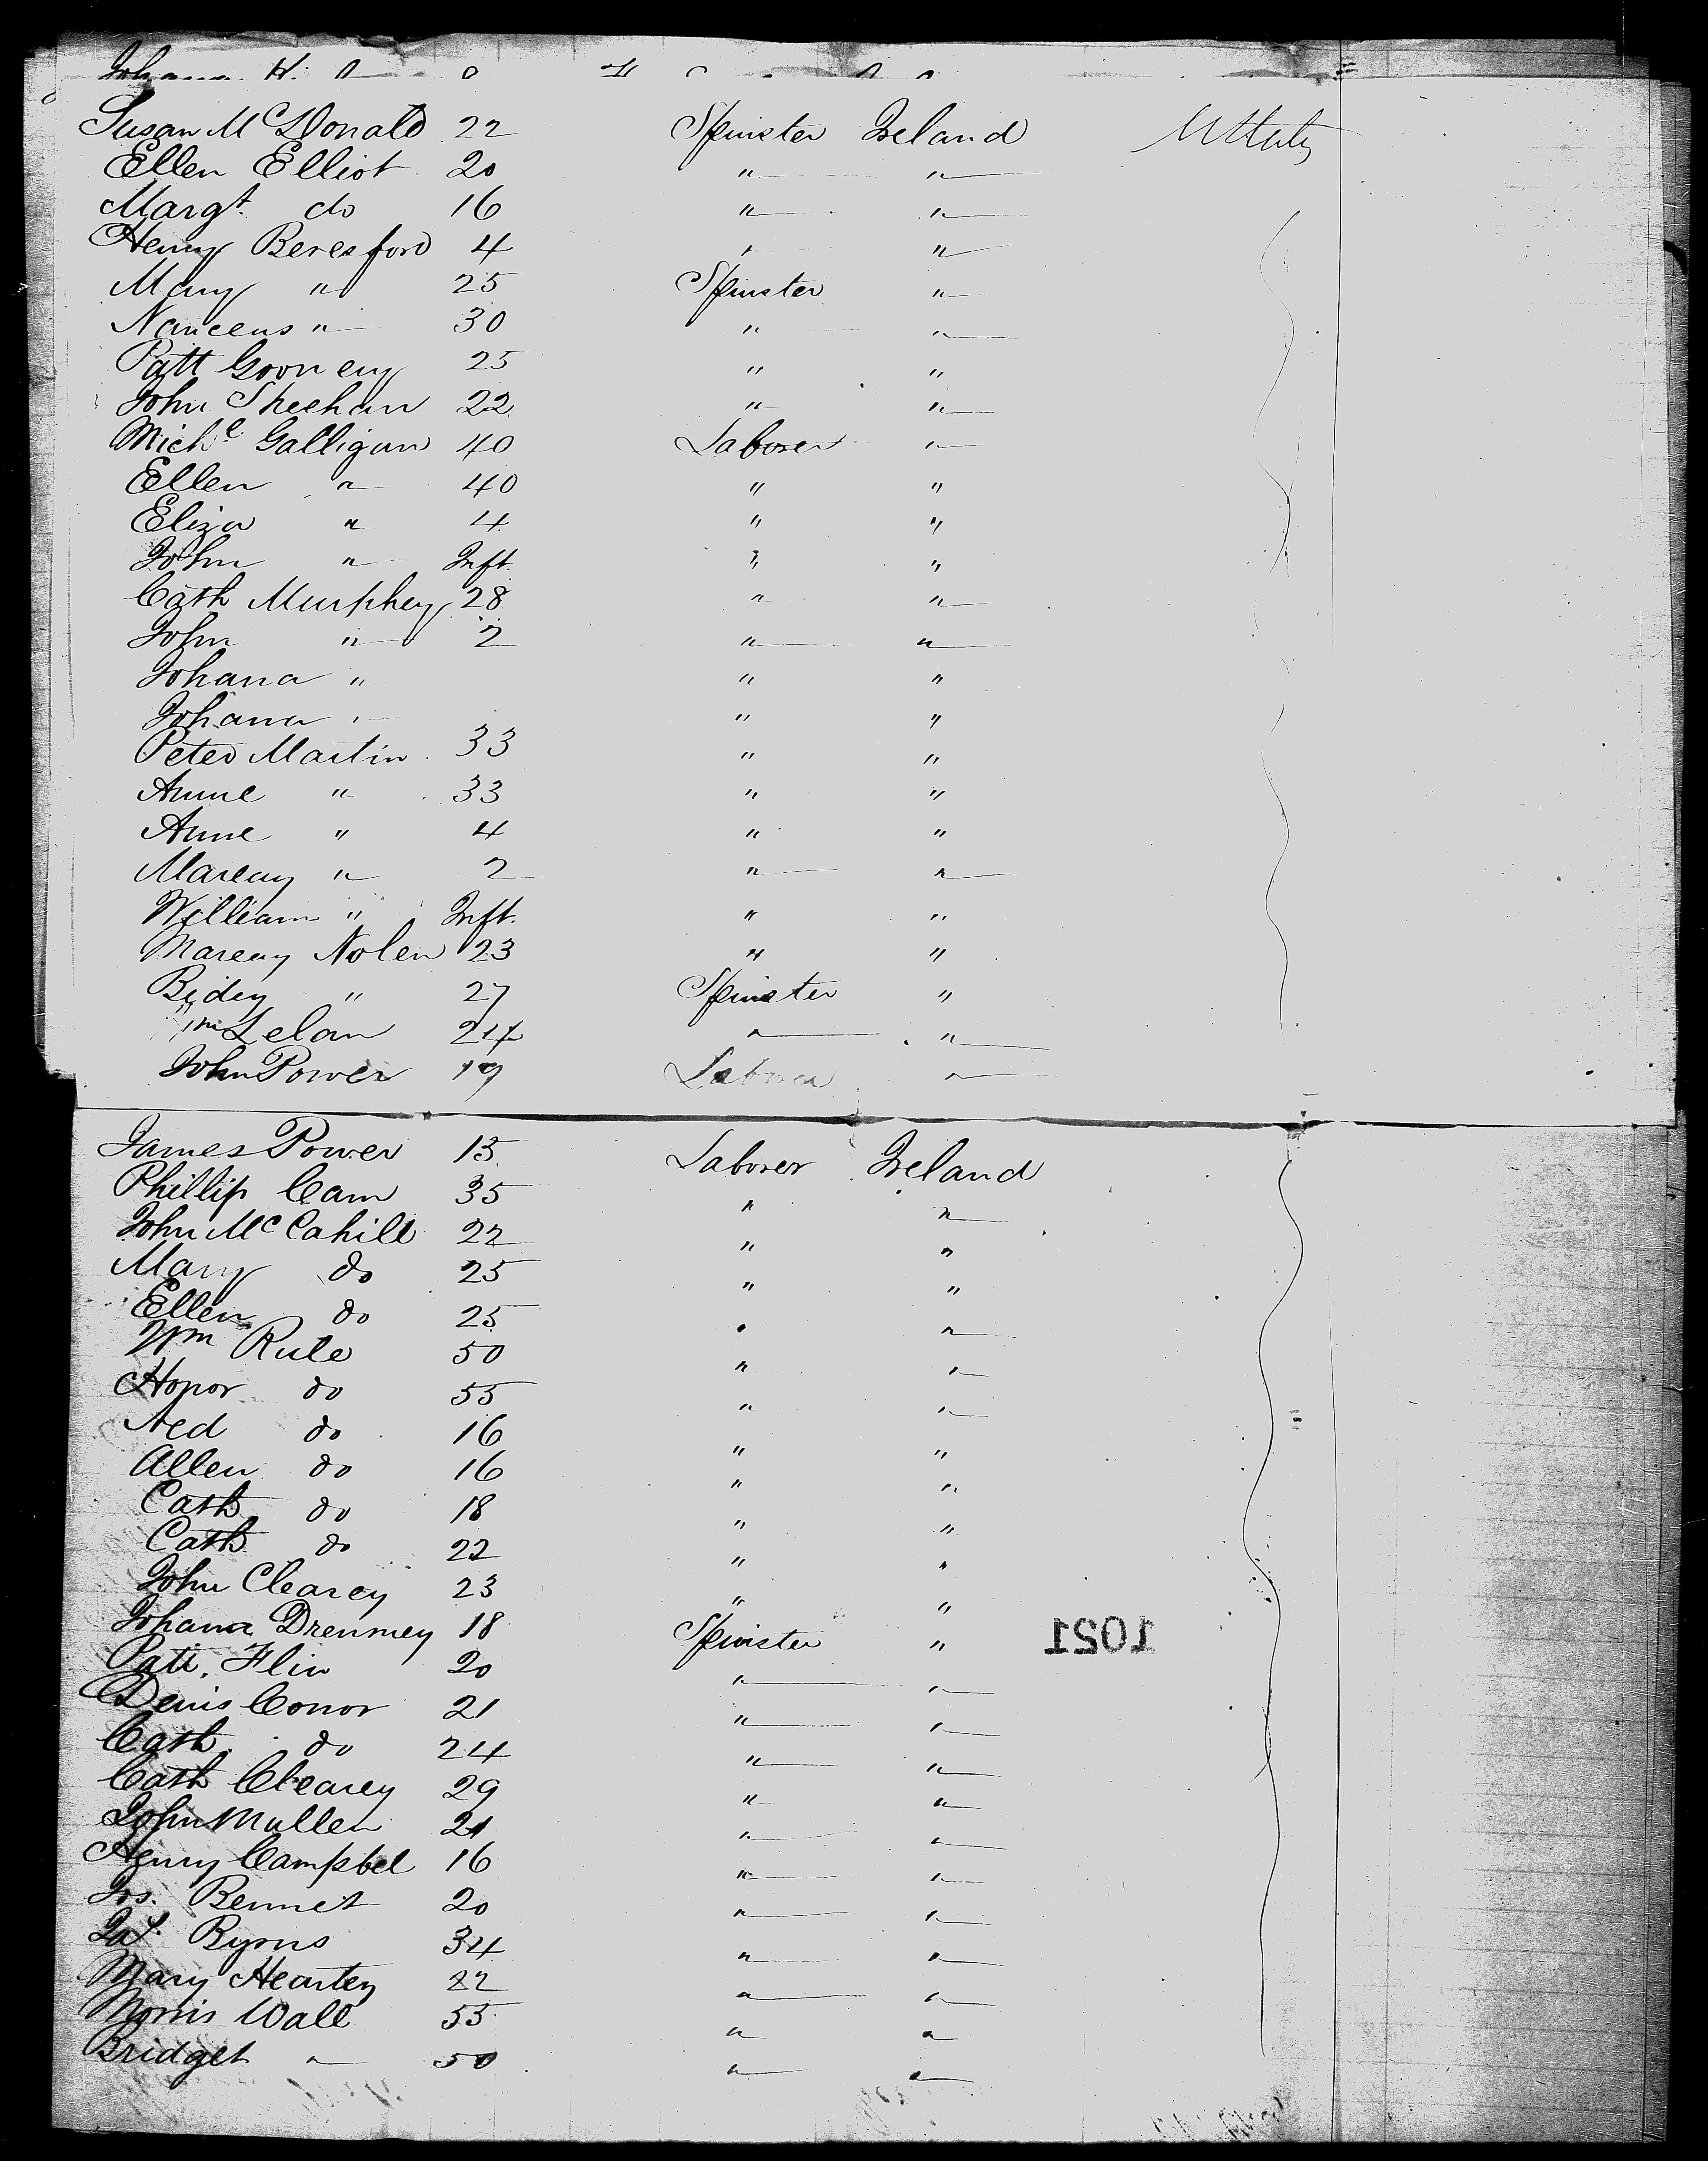 Johana
Susan McDonald 22 Spinster Ireland U States
Ellen Elliot 20 " "
Margt. do 16 " "
Henry Beresford 4 " "
Mary " 25 Spinster "
" 30 " "
Patt Gooney 25 " "
John Sheehan 22 " "
Michl Galligan 40 Laborer "
Ellen " 40 " "
Eliza " 4 " "
John " Inft. " "
Cath Murphey 28 " "
John " 2 " "
Johana " " "
Johana " " "
Peter Martin 33 " "
Anne " 33 " "
Anne " 4 " "
Mareay " 2 " "
William " Inft. " "
Mareay Nolen 23 " "
Bidey " 27 Spinster "
Wm Lelan 24 " "
John Power 19 Laborer "
James Power 15 Laborer Ireland
Phillip Cam 35 " "
John McCahill 22 " "
Mary do 25 " "
Ellen do 25 " "
Wm Rule 50 " "
Honor do 55 " "
Ned do 16 " "
Allen do 16 " "
Cath do 18 " "
Cath do 22 " "
John Clearey 23 " "
Johana Drenney 18 Spinster " 1021
Patt. Flin 20 " "
Denis Conor 21 " "
Cath. do 24 " "
Cath Clearey 29 " "
John Mullen 21 " "
Henry Campbel 16 " "
Jos. Bennet 20 " "
Pat. Byrns 34 " "
Mary Heartey 22 " "
Morris Wall 55 " "
Bridget " 50 " "